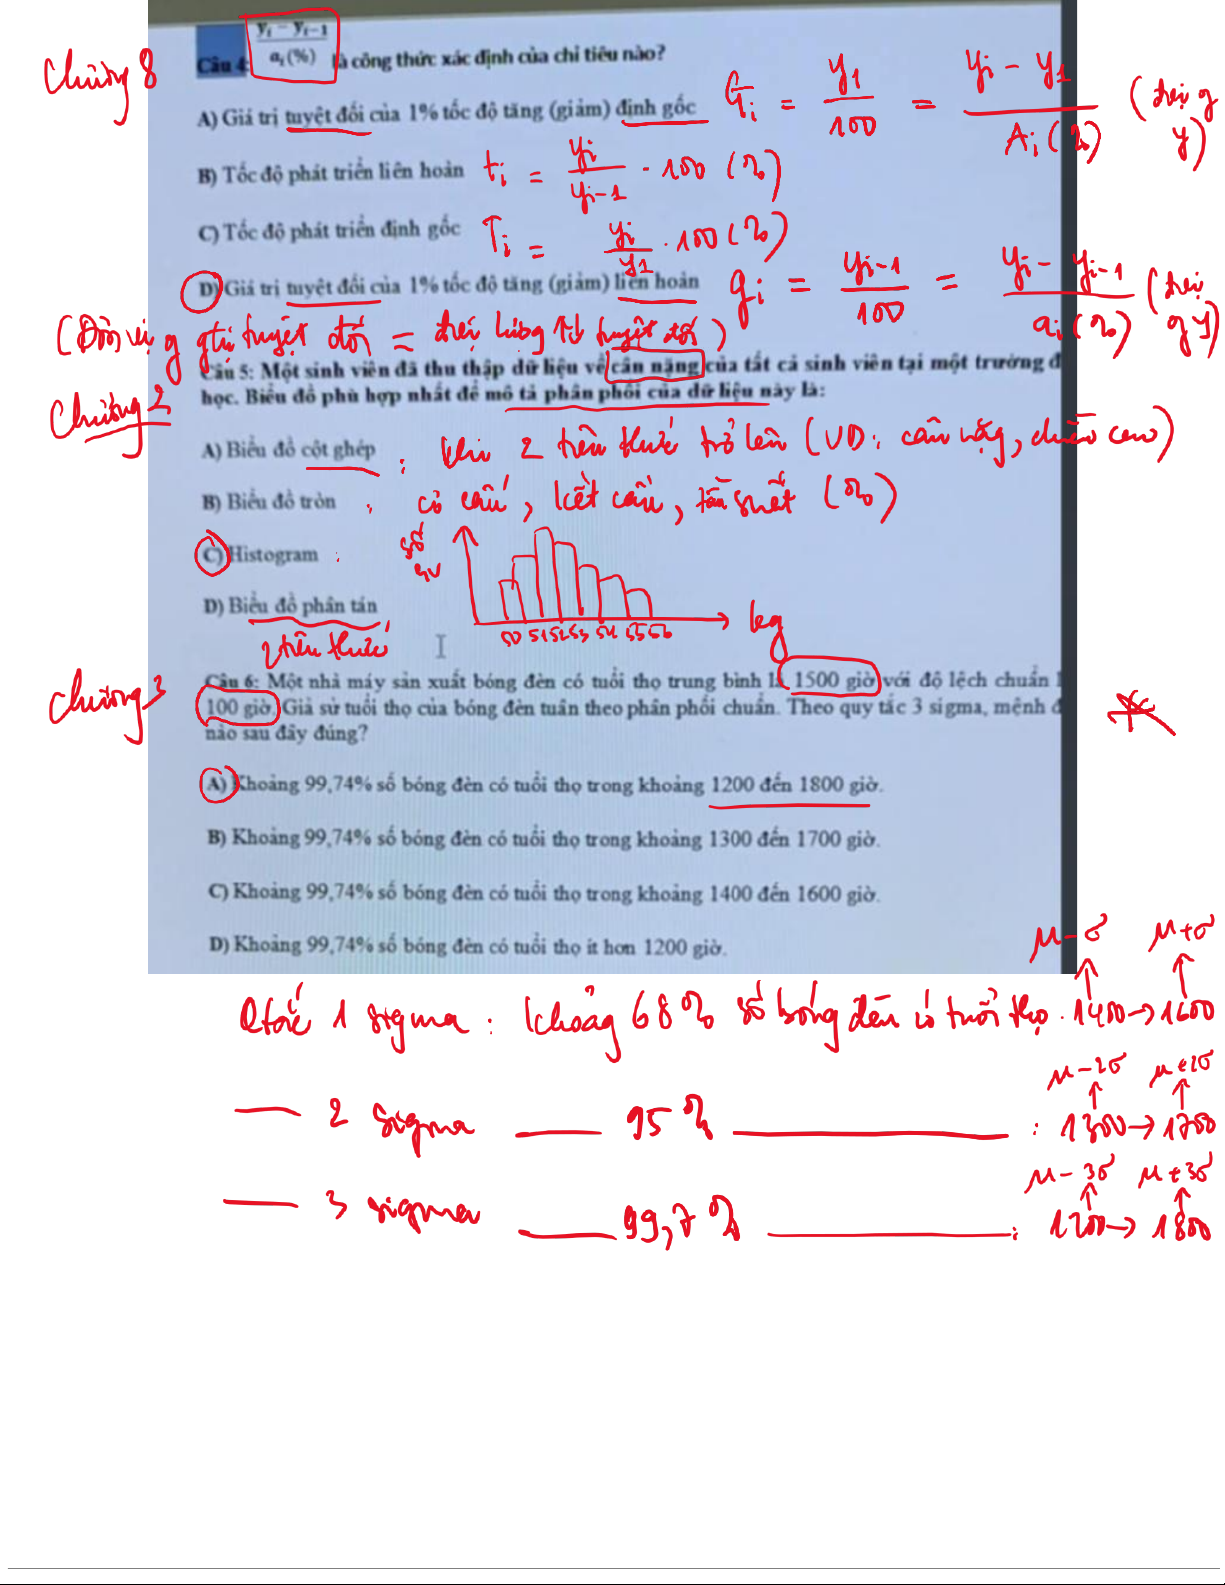 Chương 8
Câu 4: yᵢ − yᵢ₋₁ / aᵢ(%) là công thức xác định của chỉ tiêu nào?
A) Giá trị tuyệt đối của 1% tốc độ tăng (giảm) định gốc Gᵢ = y₁/100 = yᵢ − y₁ / Aᵢ(%)
B) Tốc độ phát triển liên hoàn tᵢ = yᵢ/yᵢ₋₁ · 100 (%)
C) Tốc độ phát triển định gốc Tᵢ = yᵢ/y₁ · 100 (%)
D) Giá trị tuyệt đối của 1% tốc độ tăng (giảm) liên hoàn gᵢ = yᵢ₋₁/100 = yᵢ − yᵢ₋₁ / aᵢ(%)
tuyệt đối =
Chương 2
Câu 5: Một sinh viên đã thu thập dữ liệu về cân nặng của tất cả sinh viên tại một trường đ
học. Biểu đồ phù hợp nhất để mô tả phân phối của dữ liệu này là:
A) Biểu đồ cột ghép : khi 2 tiêu thức trở lên (VD: cân nặng, chiều cao)
B) Biểu đồ tròn : cơ cấu, kết cấu, tần suất (%)
C) Histogram :
số
sv
D) Biểu đồ phân tán
50 51 52 53 54 55 56 kg
2 tiêu thức
Chương 3
Câu 6: Một nhà máy sản xuất bóng đèn có tuổi thọ trung bình là 1500 giờ với độ lệch chuẩn l
100 giờ. Giả sử tuổi thọ của bóng đèn tuân theo phân phối chuẩn. Theo quy tắc 3 sigma, mệnh đ
nào sau đây đúng?
A) Khoảng 99,74% số bóng đèn có tuổi thọ trong khoảng 1200 đến 1800 giờ.
B) Khoảng 99,74% số bóng đèn có tuổi thọ trong khoảng 1300 đến 1700 giờ.
C) Khoảng 99,74% số bóng đèn có tuổi thọ trong khoảng 1400 đến 1600 giờ.
D) Khoảng 99,74% số bóng đèn có tuổi thọ ít hơn 1200 giờ.
μ−σ μ+σ
Qtắc 1 sigma : khoảng 68% số bóng đèn có tuổi thọ : 1400 → 1600
μ−2σ μ+2σ
2 sigma 95% : 1300 → 1700
μ−3σ μ+3σ
3 sigma 99,7% : 1200 → 1800